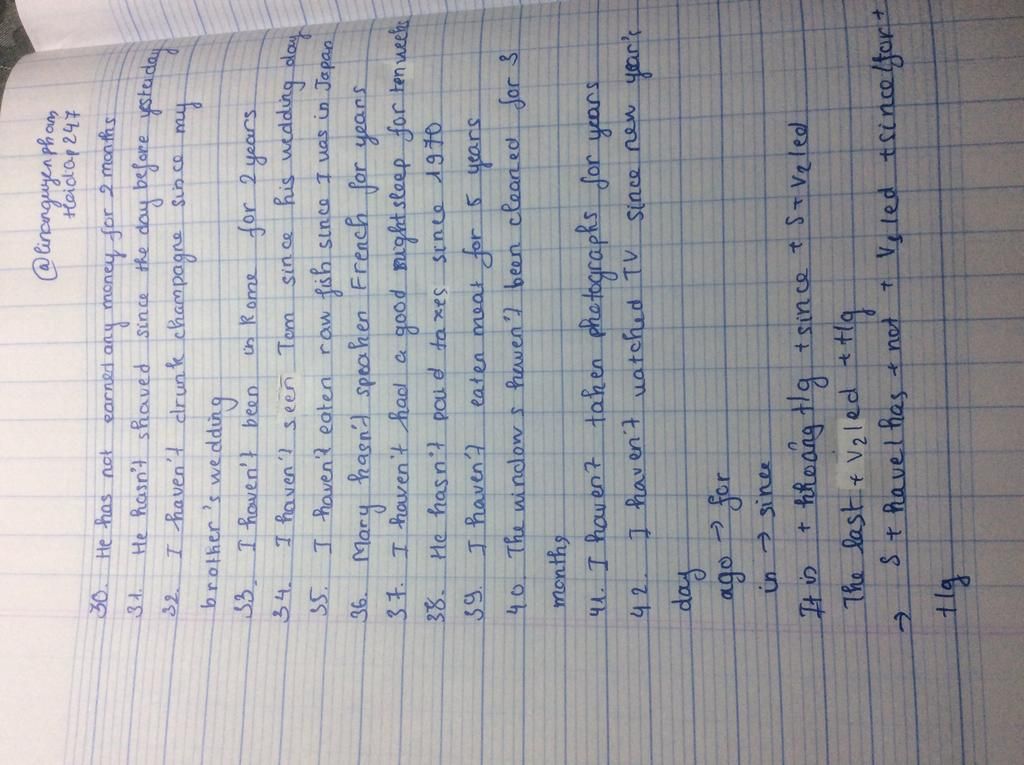 @linonguyenpham
Hoidap247
30. He has not earned any money for 2 months
31. He hasn't shaved since the day before yesterday
32. I haven't drunk champagne since my
brother's wedding
33. I haven't been in Rome for 2 years
34. I haven't seen Tom since his wedding day
35. I haven't eaten raw fish since I was in Japan
36. Mary hasn't speaken French for years
37. I haven't had a good nightsleep for ten weeks
38. He hasn't paid taxes since 1970
39. I haven't eaten meat for 5 years
40. The windows haven't been cleaned for 3
months
41. I haven't taken photographs for years
42. I haven't watched TV since new year's
day
ago → for
in → since
It is + khoảng t/g + since + S + V2/ed
The last + V2/ed + t/g
→ S + have/has + not + V3/ed + since/for +
t/g